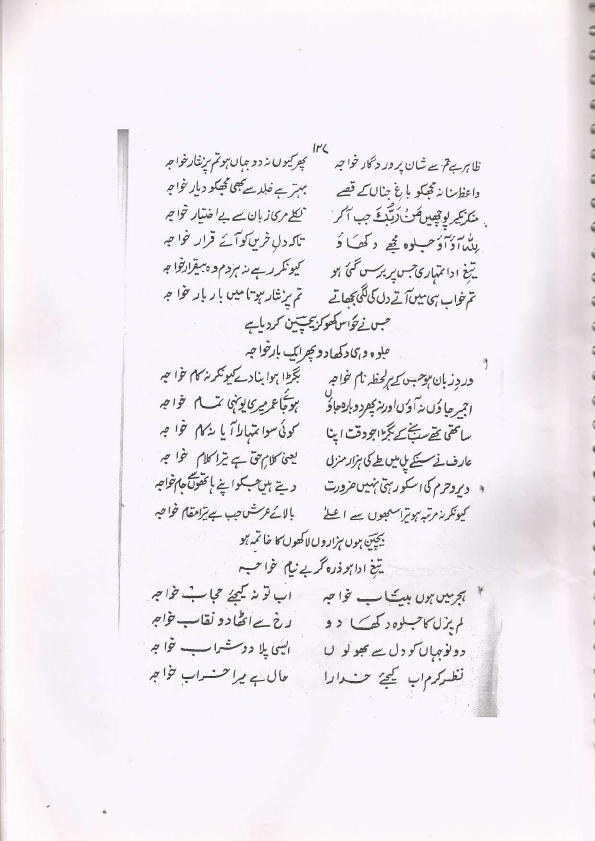 ۱۲۷
ظاہر ہے تم سے شان پروردگار خواجہ پھر کیوں نہ دو جہاں ہو تم پر نثار خواجہ
واعظ سنا نہ مجھکو باغِ جناں کے قصے بہتر ہے خلد سے بھی مجھکو دیار خواجہ
منکر نکیر پوچھیں مَنْ رَبُّکَ جب آ کر نکلے مری زبان سے بے اختیار خواجہ
لِلّٰہ آؤ آؤ جلوہ مجھے دکھاؤ تاکہ دلِ حزیں کو آئے قرار خواجہ
تیغِ ادا تمہاری جس پر برس گئی ہو کیونکر رہے نہ ہر دم وہ بیقرار خواجہ
تم خواب ہی میں آتے دل کی لگی بجھاتے تم پر نثار ہوتا میں بار بار خواجہ
جس نے حواس کھو کر بیچین کر دیا ہے
جلوہ وہی دکھا دو پھر ایک بار خواجہ
وردِ زبان ہو جس کے ہر لحظہ نام خواجہ بگڑا ہوا بنا دے کیونکر نہ کام خواجہ
اجمیر جاؤں نہ آؤں اور نہ پھر دوبارہ جاؤں ہو جا عمر میری یونہی تمام خواجہ
ساتھی تھے سب بنے کے بگڑا جو وقت اپنا کوئی سوا تمہارا آیا نہ کام خواجہ
عارف نے سنکے پل میں طے کی ہزار منزل یعنی کلام حق ہے تیرا کلام خواجہ
دیر و حرم کی اسکو رہتی نہیں ضرورت دیتے ہیں جسکو اپنے ہاتھوں سے جام خواجہ
کیونکر نہ مرتبہ ہو تیرا سبھوں سے اعلےٰ بالائے عرش جب ہے تیرا مقام خواجہ
بیچین ہوں ہزاروں لاکھوں کا خاتمہ ہو
تیغِ ادا ہو ذرہ گر بے نیام خواجہ
ہجر میں ہوں بیتاب خواجہ اب تو نہ کیجئے حجاب خواجہ
لم یزل کا جلوہ دکھا دو رخ سے اٹھا دو نقاب خواجہ
دونو جہاں کو دل سے بھولوں ایسی پلا دو شراب خواجہ
نظر کرم اب کیجئے خدارا حال ہے میرا خراب خواجہ